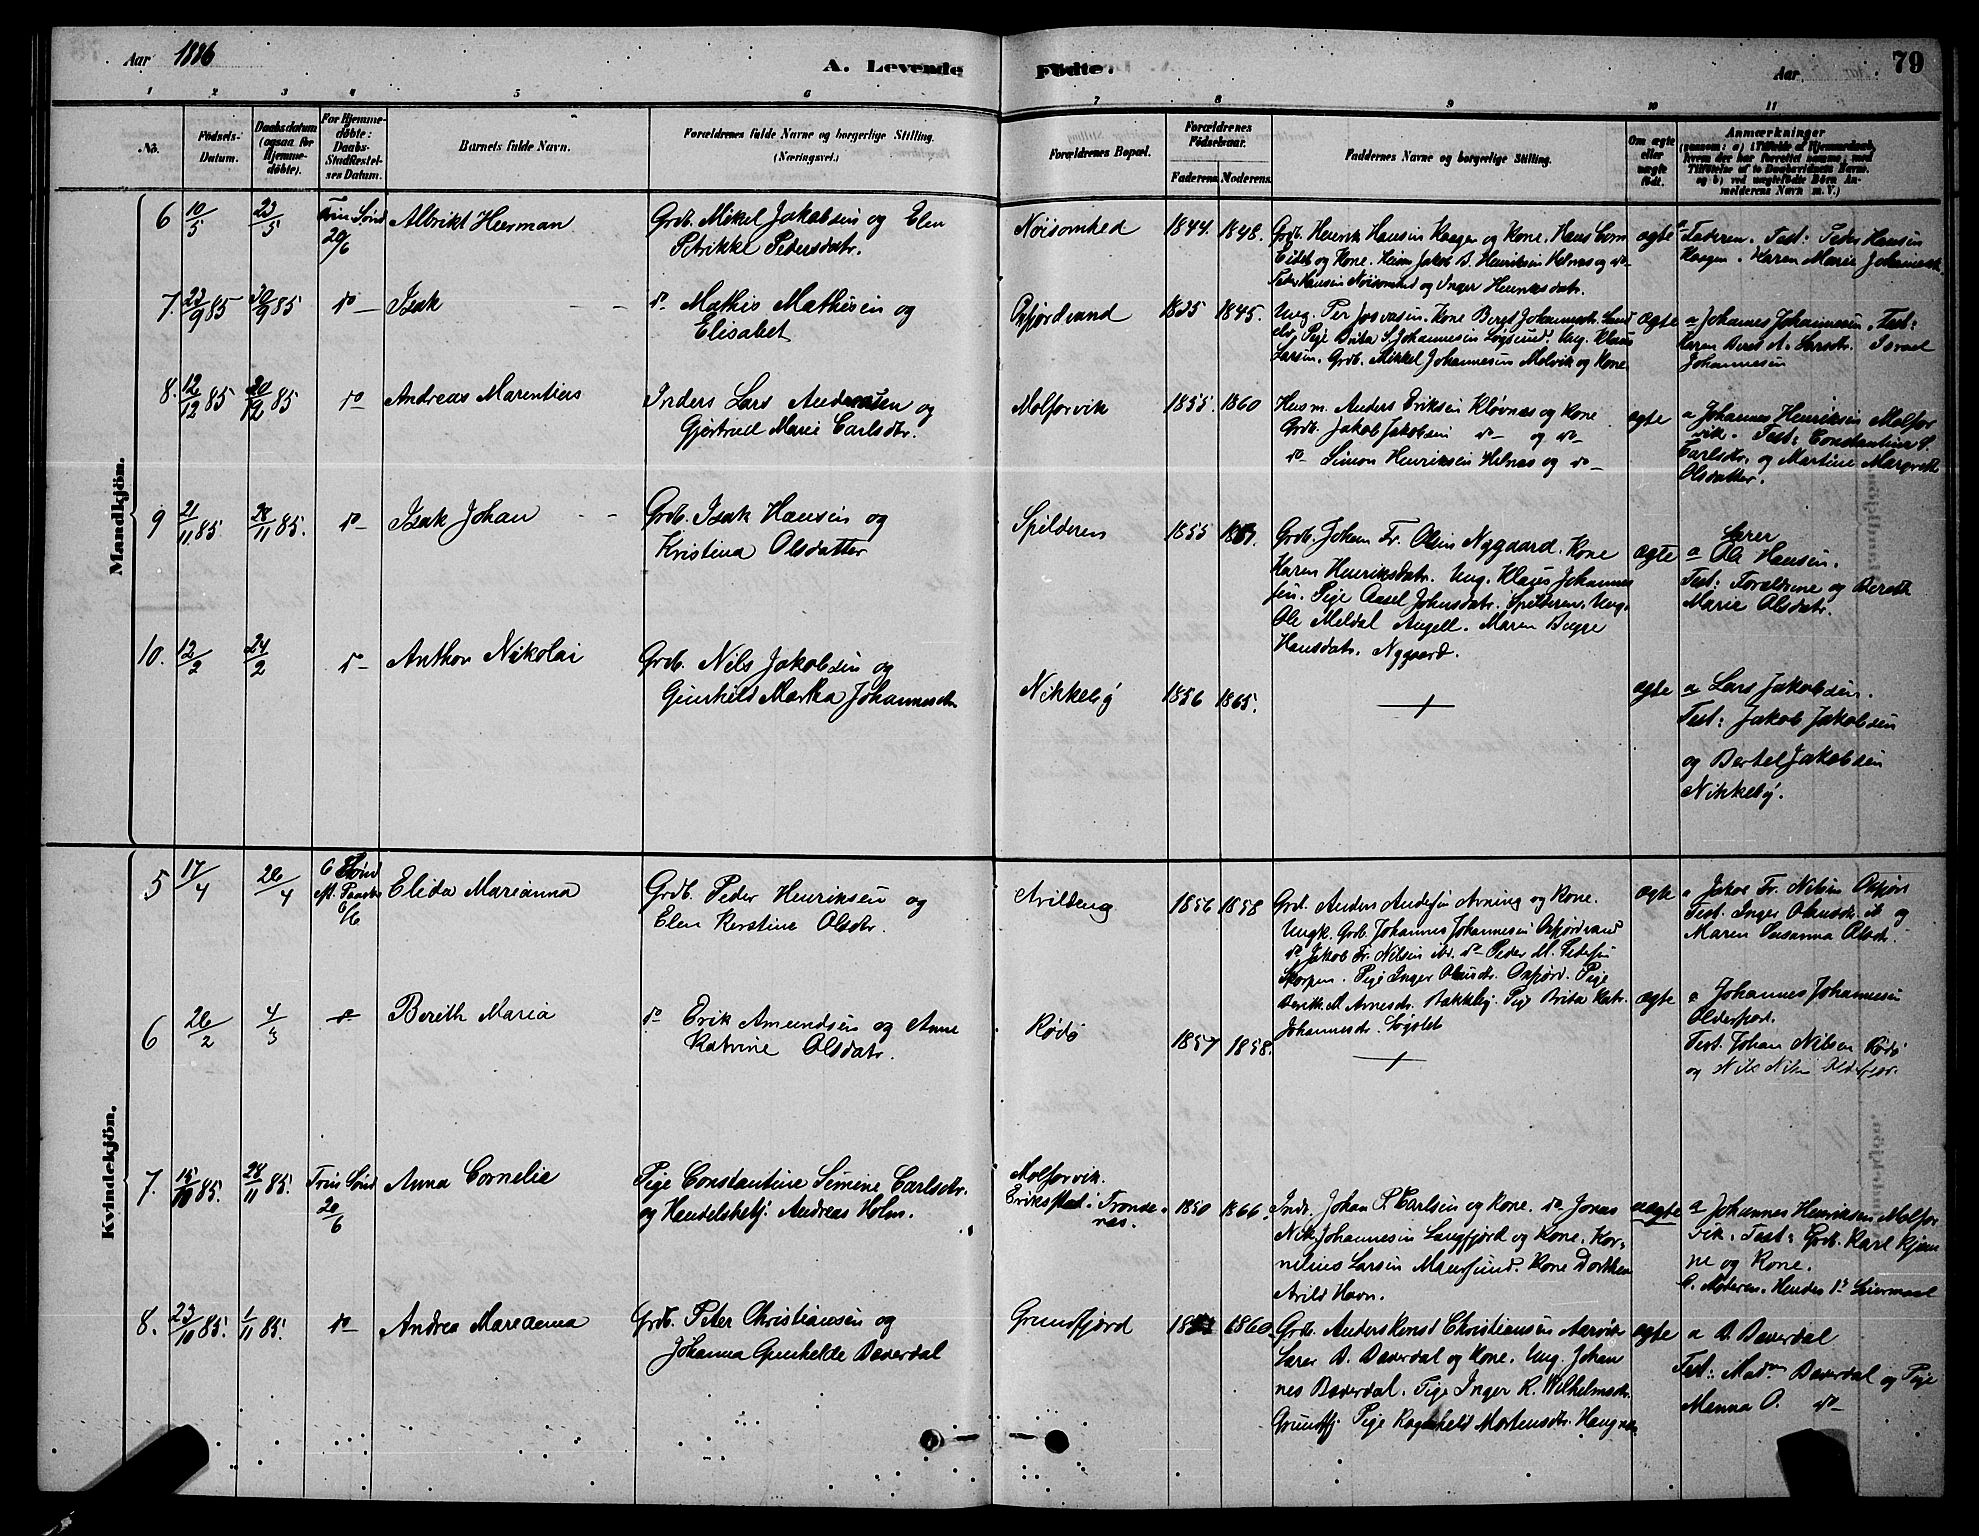 Aar 1886
A. Levende
Fødte.
Aar
79
1 2 3 4 5 6 7 8 9 10 11
No.
Fødsels-
Datum.
Daabsdatum
(ogsaa for
Hjemme-
døbte).
For Hjemme-
døbte:
Daabs-
Stadfæstel-
ses Datum.
Barnets fulde Navn.
Forældrenes fulde Navne og borgerlige Stilling.
(Næringsvei.)
Forældrenes Bopæl.
Forældrenes
Fødselsaar.
Faderens. Moderens.
Faddernes Navne og borgerlige Stilling.
Om ægte
eller
uægte
født.
Anmærkninger
Mandkjön.
6 10/5 23/5 Trin Sønd 20/6
Albrikt Herman
Grdb. Mikel Jakobsen og Elen
Petrikke Pedersdatr.
Nøisomhed 1844. 1848.
Grdb. Henrik Hansen Kaagen og Kone. Hans Corn
Eidet og Kone. Jakob B. Henriksen Helnæs og do
Peter Hansen Nøisomhed og Inger Henriksdatr.
ægte
Faderen. Test: Peder Hansen
Kaagen. Karen Marie Johannesdr
7. 23/9 85 30/9 85 do
Isak
do Mathis Mathisen og
Elisabet
Oxfjordvand 1835 1845.
Ung. Per Josvasen. Kone Beret Johannesdr. Sand
elv. Pige Brita S. Johannesen Løgsund. Ung. Klaus
Larsen. Grdb. Mikkel Johannesen Molvik og Kone
ægte
a Johannes Johannesen. Test:
Karen Beret A. Larsdr. Israel
Johannesen
8. 12/12 85 20/12 85 do
Andreas Marentius
Inders Lars Andersen og
Gjertrud Marie Carlsdtr.
Molforvik 1855. 1860
Husm. Anders Eriksen Kløvnæs og Kone
Grdb. Jakob Jakobsen do og do
do Simon Henriksen Helnæs og do
ægte
a Johannes Henriksen Molfor
vik. Test: Constantine S.
Carlsdtr. og Martine Margreth
Olsdatter.
9 21/11 85 28/11 85. do
Isak Johan
Grdb. Isak Hansen og
Kristina Olsdatter
Spilderen 1855
Grdb. Johan Fr. Olsen Nygaard. Kone
Karen Henriksdatr. Ung. Klaus Johannes
sen. Pige Aasel Johnsdatr. Spilderen. Ung.
Ole Meldal Angell. Maren Bugge
Hansdatr. Nygaard.
ægte
Lærer
a Ole Hansen.
Test: Forældrene og Bereth
Marie Olsdatr.
10. 12/2 24/2 do
Anthon Nikolai
Grdb. Nils Jakobsen og
Gunhild Martha Johannesdr.
Nikkeby 1856 1865.
ægte
a Lars Jakobsen.
Test: Jakob Jakobsen
og Bertel Jakobsen
Nikkeby.
Kvindekjön.
5 17/4 26/4 6 Sønd
ef. Paaske
6/6
Elida Marianna
Grdb. Peder Henriksen og
Elen Kerstine Olsdtr.
Avildeng 1856 1858
Grd. Anders Andersen Arning og Kone.
Ungk. Grdb. Johannes Johannesen Oxfjordvand
do Jakob Fr. Nilsen ibd. do Peder M. Pedersen
Skorpen. Pige Inger Olausdr. Oxfjord. Pige
Berith M. Arnesdr. Bakkeby. Pige Brita Katr.
Johannesdr. Løgslet
ægte
a Jakob Fr. Nilsen Oxfjord
Test. Inger Olausdr. ib og
Maren Susanna Olsdr.
6 26/2 4/3 do
Bereth Maria
do Erik Amundsen og Anne
Katrine Olsdatr.
Rødø 1857 1858.
ægte
a Johannes Johannesen
Olderfjord.
Test. Johan Nilsen Rødø
og Nils Nilsen Olderfjor.
7. 15/10 85. 28/11 85. Trin Sønd 20/6
Anna Cornelia
Pige Constantine Simine Carlsdtr.
og Handelsbetj. Andreas Holm.
Molforvik.
Erikstad i Tronde
næs. 1850 1866.
Indr. Johan P. Carlsen og Kone. do Jonas
Nik. Johannesen Langfjord og Kone. Kor-
nelius Larsen Maursund. Kone Dorthea
Arild Havn.
uægte
a Johannes Henriksen Molfor
vik. Test: Grdb. Karl Kjøn
ne og Kone.
C. Moderen. Hendes 1ste Leiermaal
8. 23/10 85. 1/11 85. do
Andrea Mareanna
Grdb. Peter Christiansen og
Johanna Gunhilde Daverdal
Grundfjord 1860
Grdb. Anders Konst Christiansen Aarvik
Lærer D. Daverdal og Kone. Ung. Johan
nes Daverdal. Pige Inger R. Wilhelmsdr.
Grundfj. Pige Ragnhild Mortensdtr. Haugnæs
ægte
a D. Daverdal
Test: Madm Daverdal og Pige
Menna O. do